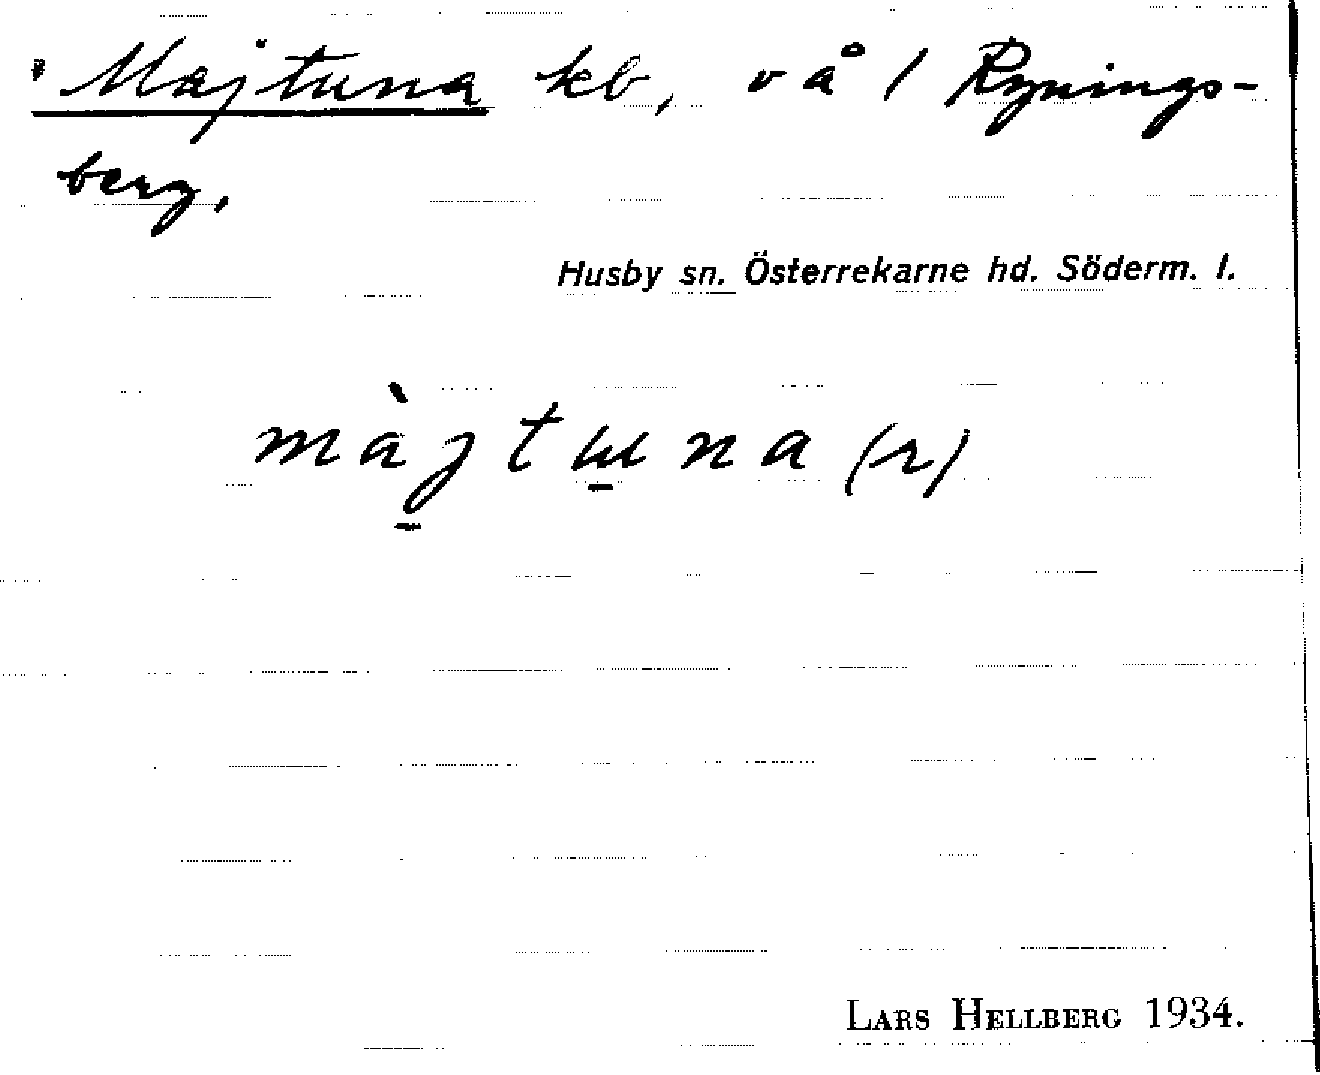 Majtuna kb, v å / Rynings-
berg,
Husby sn. Österrekarne hd. Söderm. l.
màj̱tɯ̱na(r)
LARS HELLBERG 1934.